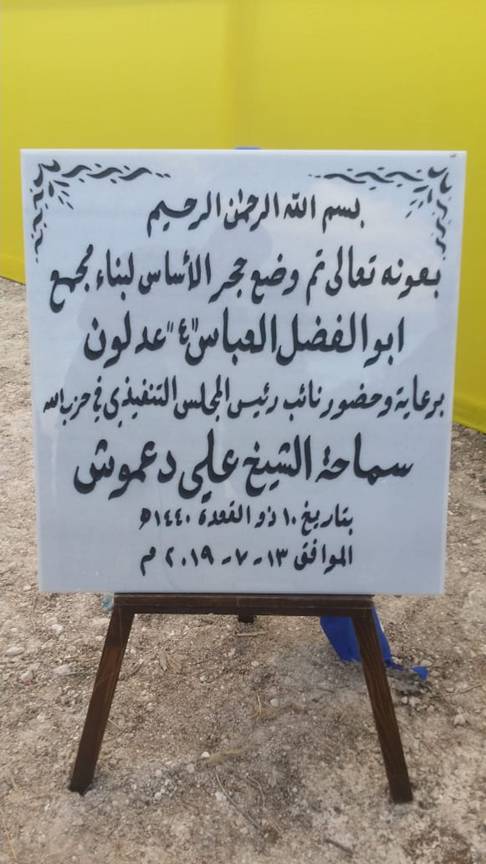 بسم الله الرحمن الرحيم
بعونه تعالى تم وضع حجر الأساس لبناء مجمع
ابو الفضل العباس "ع" عدلون
برعاية وحضور نائب رئيس المجلس التنفيذي في حزب الله
سماحة الشيخ علي دعموش
بتاريخ ١٠ ذو القعدة ١٤٤٠ه
الموافق ١٣-٧-٢٠١٩ م